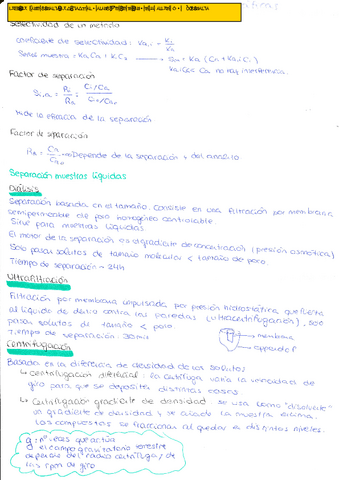 Selectividad de un método
coeficiente de selectividad: Ka,i = Ki / Ka
Señal muestra = KaCa + KiCi → Sm = Ka (Ca + Ka,i Ci)
Ka,i Ci << Ca no hay interferencia
Factor de separación
Si,a = Ri / Ra = Ci/Cio / Ca/Cao
Mide la eficacia de la separación
Factor de separación
Ra = Ca / Cao → Depende de la separación y del analito.
Separación muestras líquidas
Diálisis
Separación basada en el tamaño. Consiste en una filtración por membrana
semipermeable de poro homogéneo controlable.
Sirve para muestras líquidas
El motor de la separación es el gradiente de concentración (presión osmótica)
Solo pasan solutos de tamaño molecular < tamaño de poro.
Tiempo de separación ~ 24h
Ultrafiltración
Filtración por membrana impulsada por presión hidrostática, que fuerza
al líquido de dentro contra las paredes (ultracentrifugación), solo
pasan solutos de tamaño < poro.
Tiempo de separación: 30min
membrana
Centrifugación
Basada en la diferencia de densidad de los solutos
↳ Centrifugación diferencial: la centrífuga varía la velocidad de
giro para que se depositen distintas cosas.
↳ Centrifugación gradiente de densidad: se usa como "disolvente"
un gradiente de densidad y se añade la muestra encima.
Los compuestos se fraccionan al quedar a distintos niveles.
g = nº veces que actúa
el campo gravitatorio terrestre
depende del radio centrífuga y de
las rpm de giro